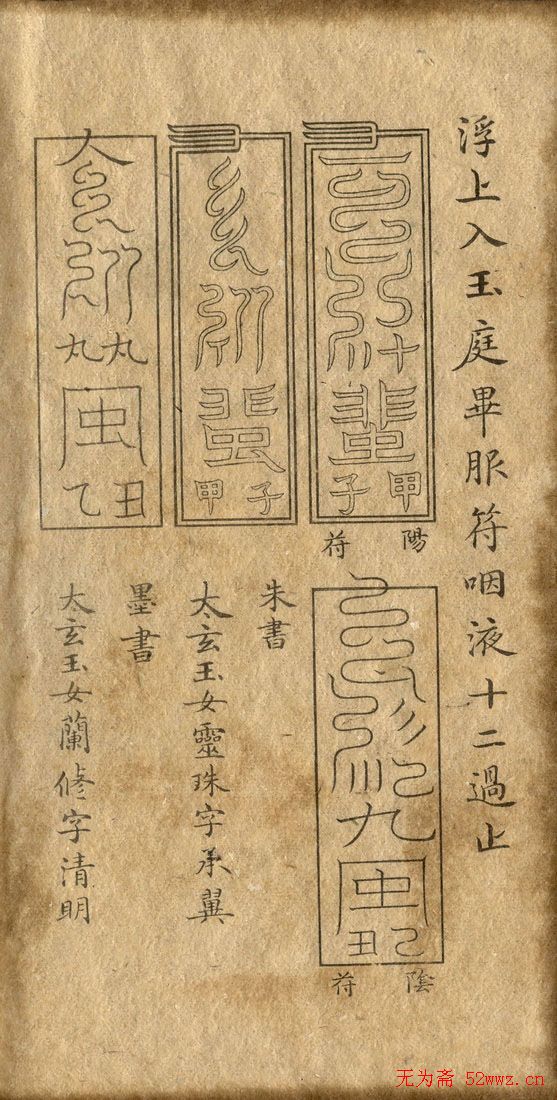 浮上入玉庭畢服符咽液十二過止
甲
子
陽
符
己
丑
陰
符
子
甲
朱書
太玄玉女靈珠字承翼
丑
乙
墨書
太玄玉女蘭修字清明
无为斋 52wwz.cn